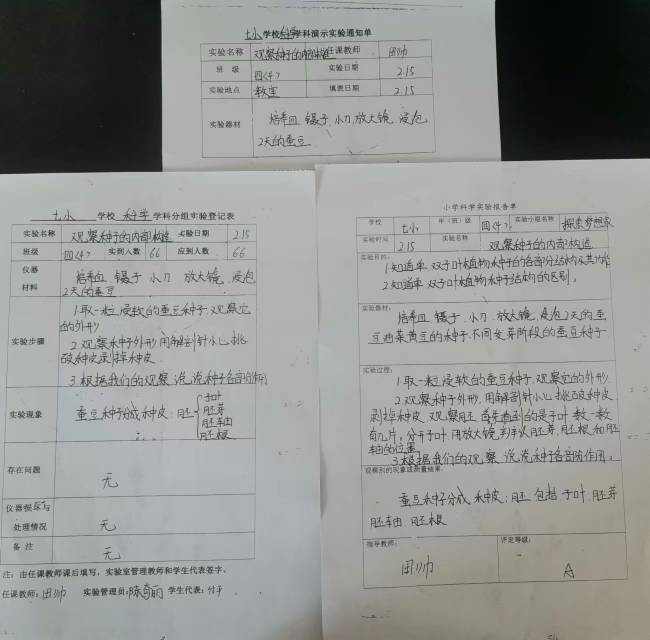 七小学校科学学科演示实验通知单
实验名称 观察种子的内部构造 任课教师 田帅
班 级 四〈4〉 实验日期 2.15
实验地点 教室 填表日期 2.15
实验器材 培养皿 镊子、小刀、放大镜 浸泡
2天的蚕豆
七小 学校 科学 学科分组实验登记表
实验名称 观察种子的内部构造 实验日期 2.15
班级 四〈4〉 实到人数 66 应到人数 66
仪器
材料
培养皿 镊子 小刀 放大镜 浸泡
2天的蚕豆
实验步骤
1.取一粒浸软的蚕豆种子,观察它
的外形
2.观察种子外形,用解剖针小心挑
破种皮剥掉种皮
3.根据我们的观察,说说种子各部作用
实验现象
蚕豆种子分成种皮、胚
子叶
胚芽
胚轴
胚根
存在问题 无
仪器损坏与
处理情况 无
备 注 无
注:由任课教师课后填写,实验室管理教师和学生代表签字。
任课教师:田帅 实验管理员:陈奇丽 学生代表:
小学科学实验报告单
学校 七小 年(班)级 四〈4〉 实验小组名称 探索梦想家
实验时间 2.15 实验名称 观察种子的内部构造
实验目的:
1.知道单、双子叶植物种子的各部分结构及其功能
2.知道单、双子叶植物种子结构的区别。
实验器材:
培养皿、镊子、小刀、放大镜、浸泡2天的蚕
豆油菜黄豆的种子、不同发芽阶段的蚕豆种子
实验过程:
1.取一粒浸软的蚕豆种子,观察它的外形
2.观察种子外形,用解剖针小心挑破种皮
剥掉种皮,观察胚,首先看到的是子叶,数一数
有几片。分开子叶,用放大镜 胚芽、胚根和胚
轴的位置
3.根据我们的观察,说说种子各部的作用。
观察到的现象或测量结果:
蚕豆种子分成种皮、胚,包括子叶、胚芽
胚轴、胚根
指导教师: 评定等级:
田帅 A